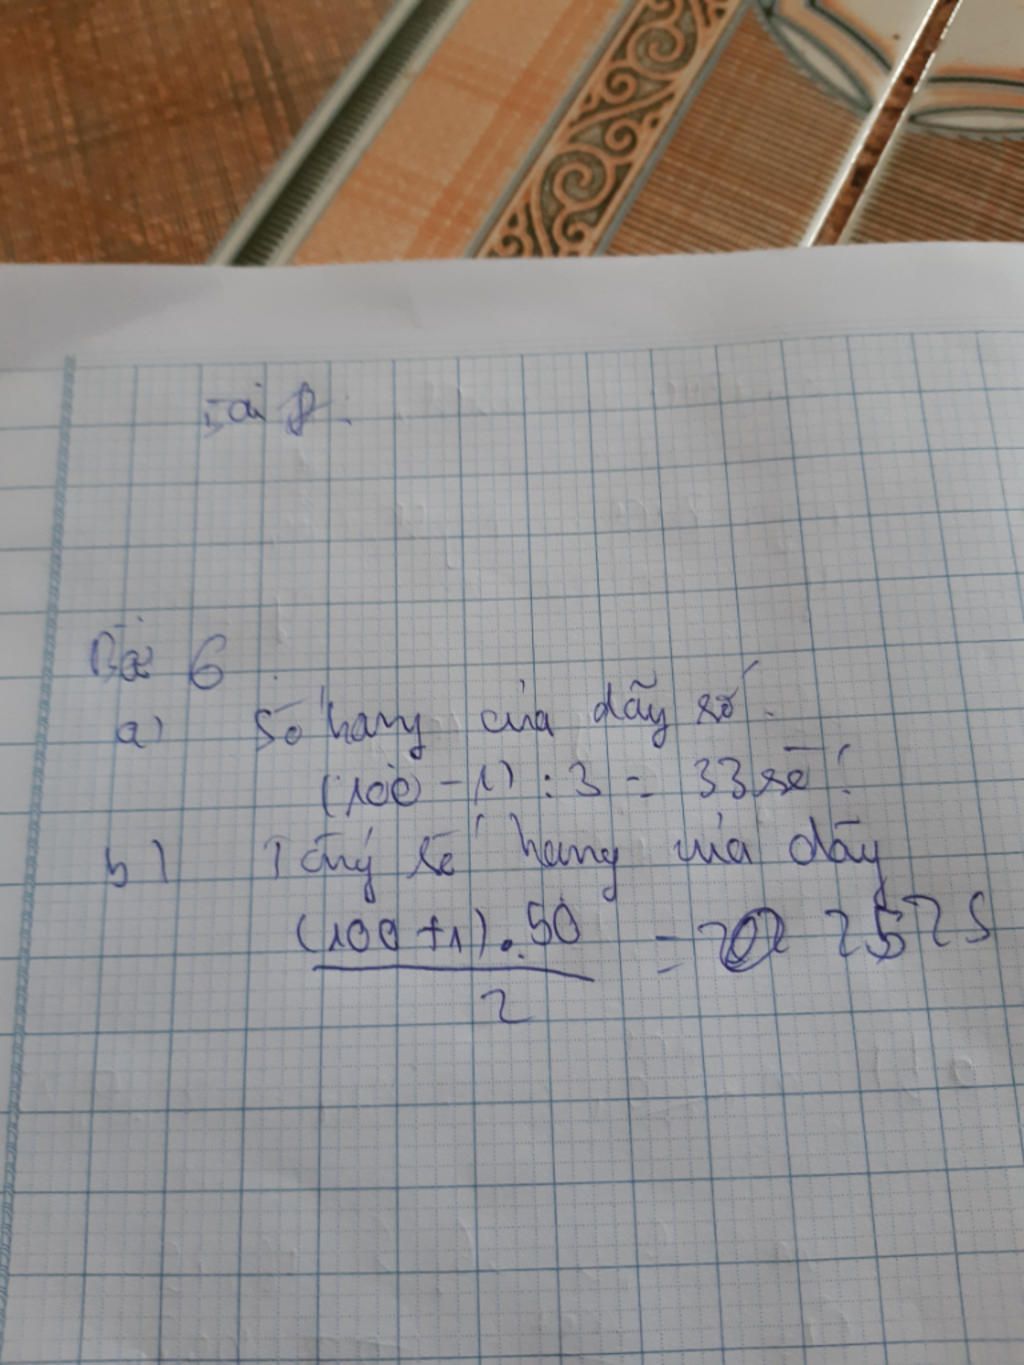 Bài 8.
Bài 6
a) Số hạng của dãy số.
(100 - 1) : 3 = 33 số!
b) Tổng số hạng của dãy
(100 + 1) . 50
= 2525
2